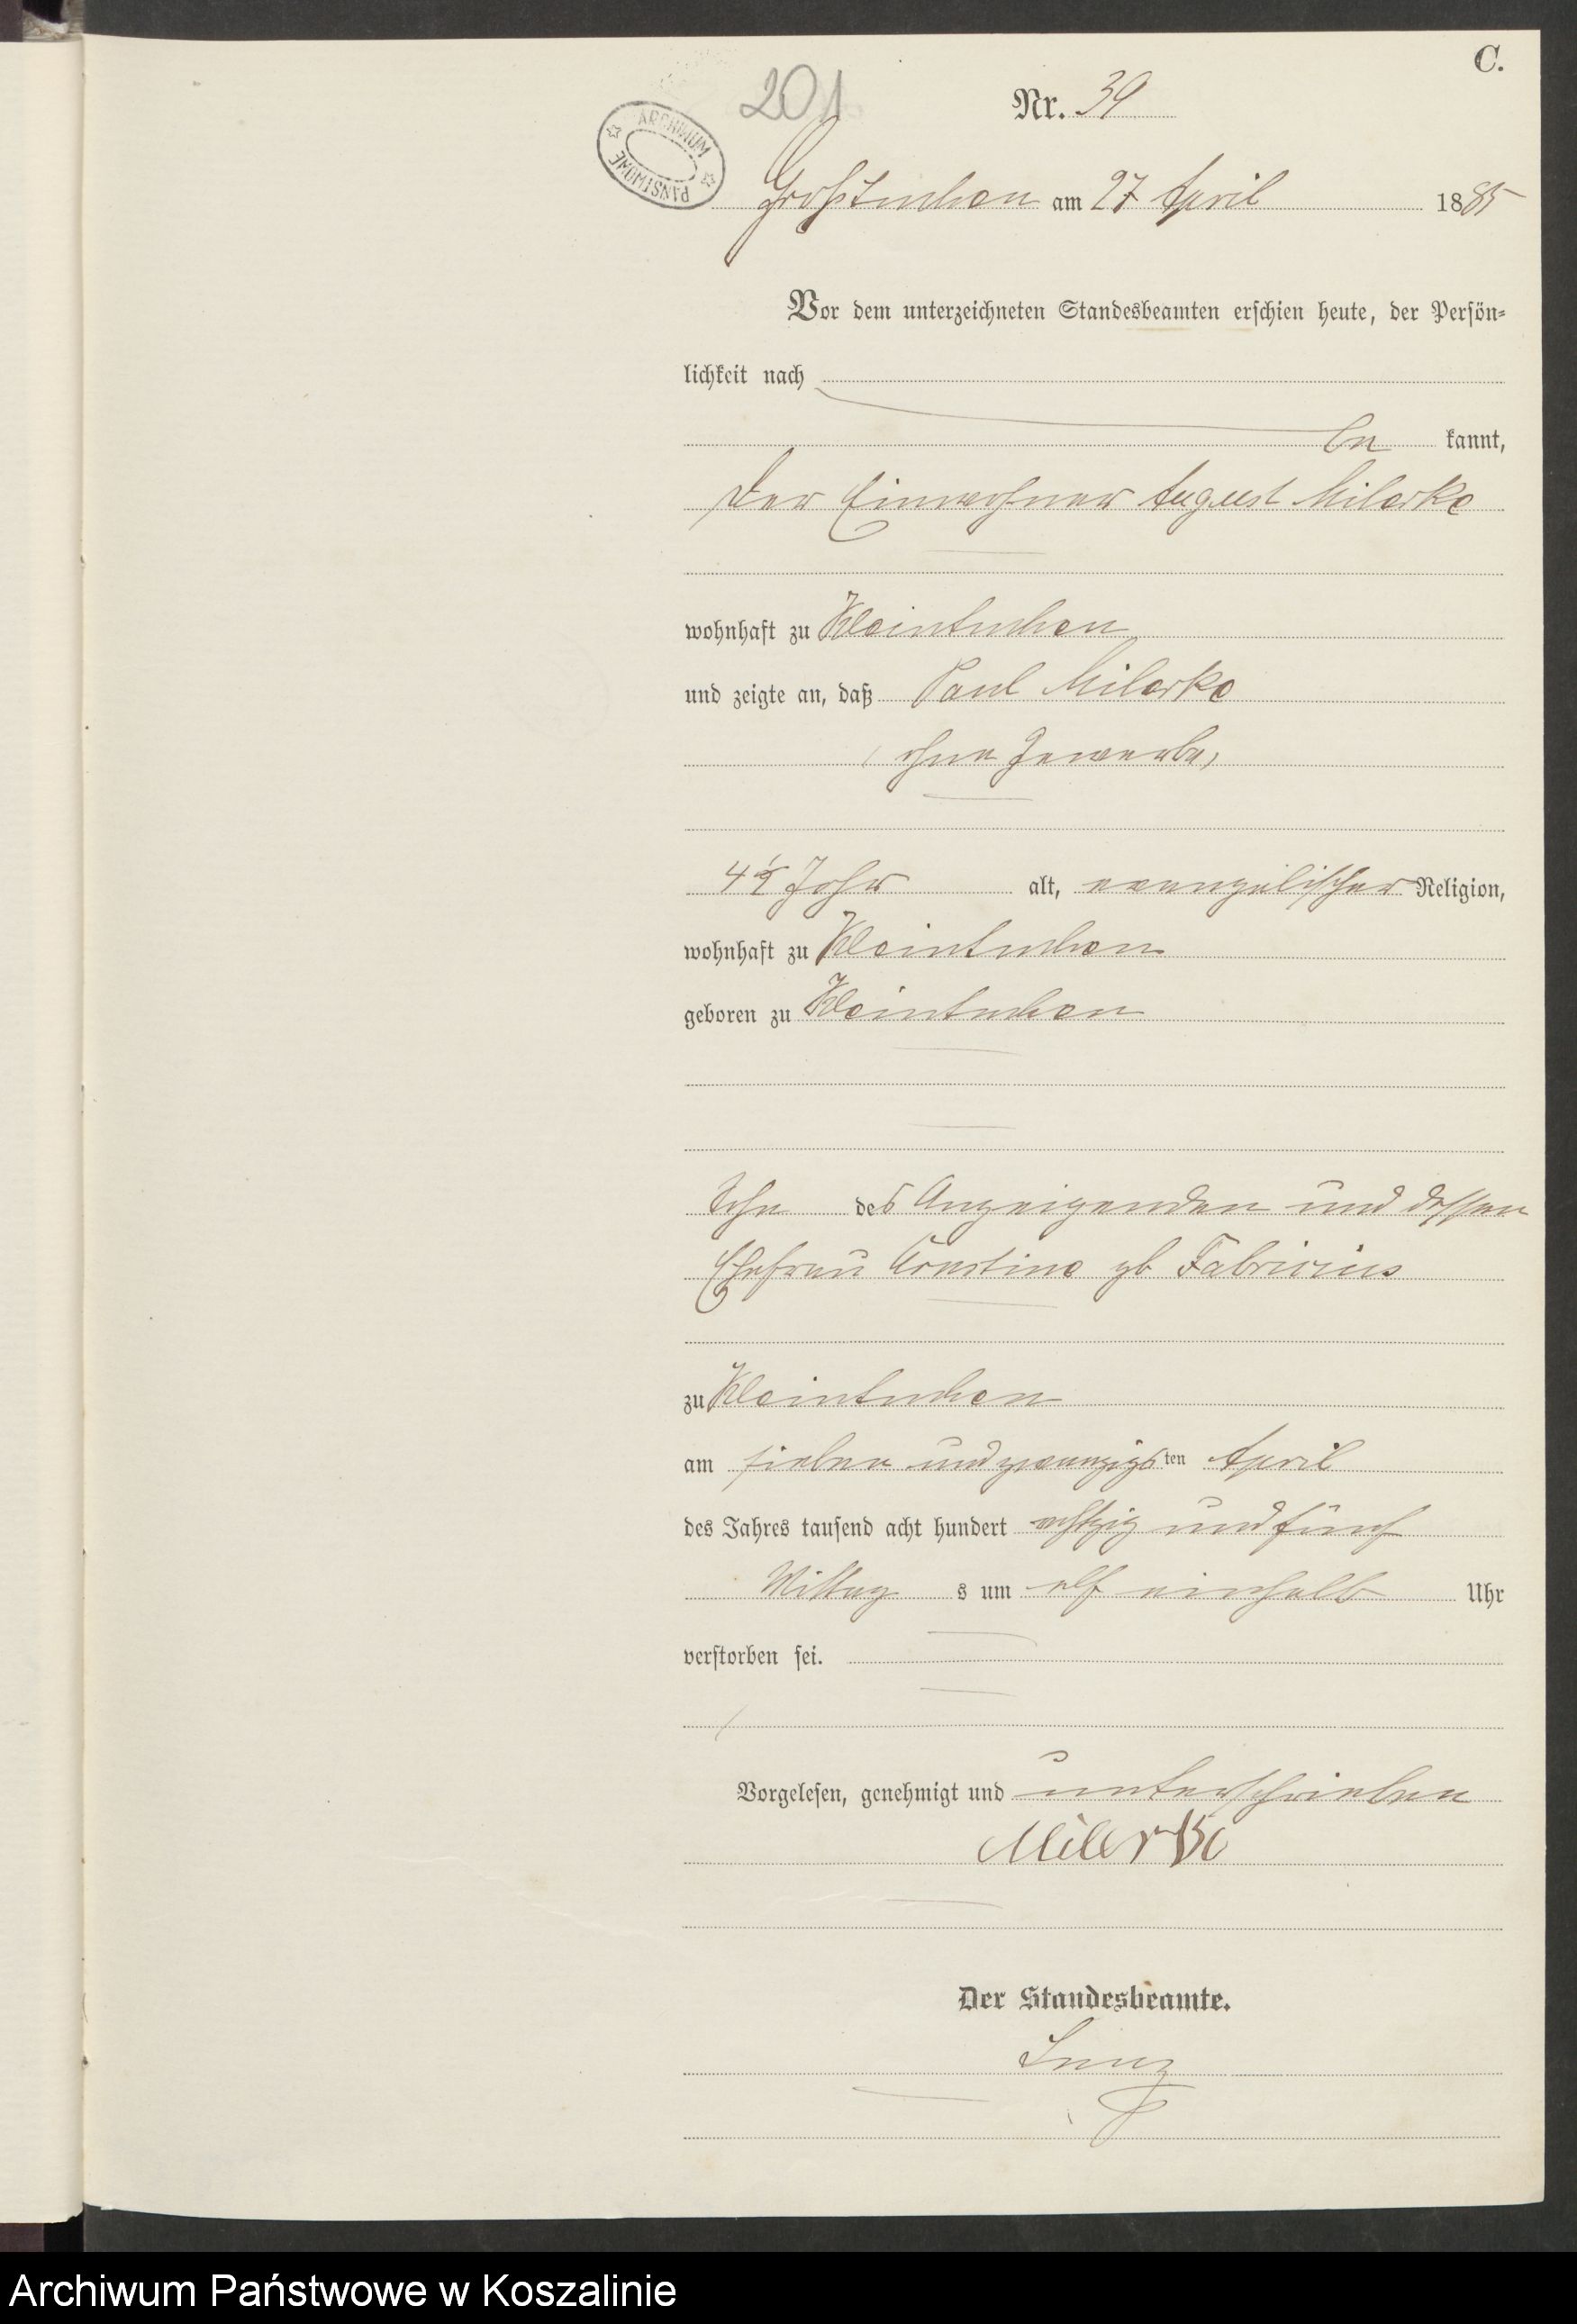 C.
201
Nr. 39
ARCHIWUM PAŃSTWOWE
Großtuchen am 27 April 1885
Vor dem unterzeichneten Standesbeamten erschien heute, der Persön-
lichkeit nach
be kannt,
der Einwohner August Milerke
wohnhaft zu Kleintuchen
und zeigte an, daß Paul Milerke
ohne Gewerbe,
4 1/2 Jahr alt, evangelischer Religion,
wohnhaft zu Kleintuchen
geboren zu Kleintuchen
Sohn des Anzeigenden und dessen
Ehefrau Ernstine gb Fabricius
zu Kleintuchen
am sieben und zwanzigsten April
des Jahres tausend acht hundert achtzig und fünf
Mittag s um elf einhalb Uhr
verstorben sei.
Vorgelesen, genehmigt und unterschrieben
Milerke
Der Standesbeamte.
Archiwum Państwowe w Koszalinie